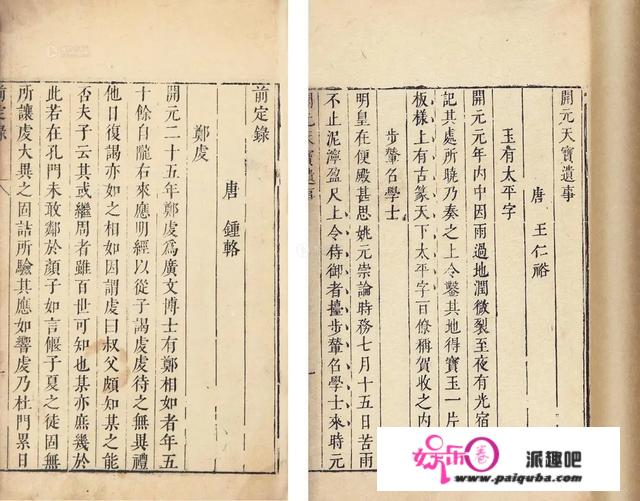 開元天寶遺事
唐 王仁裕
玉有太平字
開元元年內中因雨過地潤微裂至夜有光宿
記其處所曉乃奏之上令鑿其地得寶玉一片
板樣上有古篆天下太平字百僚稱賀收之內
步輦召學士
明皇在便殿甚思姚元崇論時務七月十五日苦雨
不止泥濘盈尺上令侍御者擡步輦召學士來時元
開元天寶遺事
前定錄
唐 鍾輅
鄭虔
開元二十五年鄭虔爲廣文博士有鄭相如者年五
十餘自隴右來應明經以從子謁虔虔待之無異禮
他日復謁亦如之相如因謂虔曰叔父頗知某之能
否夫子云其或繼周者雖百世可知也某亦庶幾於
此若在孔門未敢鄰於顏子如言偃子夏之徒固無
所讓虔大異之因詰所驗其應如響虔乃杜門累日
前定錄
派趣吧
www.paiquba.com